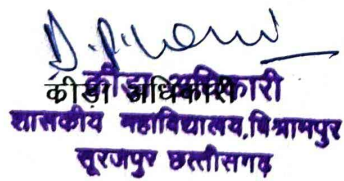 क्रीड़ा अधिकारी
क्रीड़ा अधिकारी
शासकीय महाविद्यालय, विश्रामपुर
सूरजपुर छत्तीसगढ़